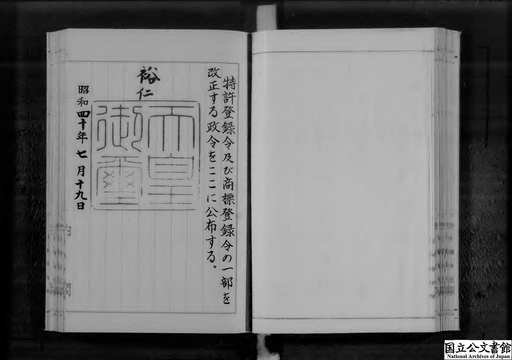 特許登録令及び商標登録令の一部を
改正する政令をここに公布する。
裕仁
天皇
御璽
昭和四十年七月十九日
国立公文書館
National Archives of Japan